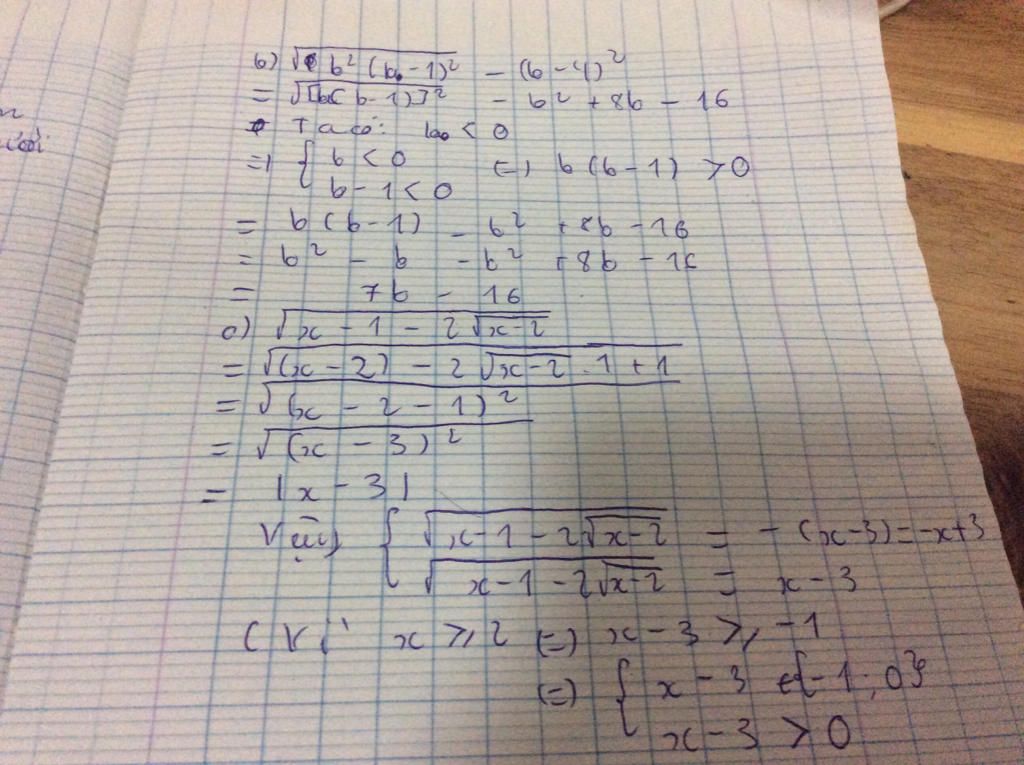 b) √b² (b - 1)² - (b - 4)²
= √[b(b - 1)]² - b² + 8b - 16
Ta có: b < 0
=> { b < 0 (=) b (b - 1) > 0
b - 1 < 0
= b (b - 1) - b² + 8b - 16
= b² - b - b² + 8b - 16
= 7b - 16
c) √x - 1 - 2√x-2
= √(x - 2) - 2√x-2 . 1 + 1
= √(x - 2 - 1)²
= √(x - 3)²
= |x - 3|
Vậy { √x-1-2√x-2 = -(x-3)=-x+3
√x-1-2√x-2 = x-3
(Vì x ⩾ 2 (=) x-3 ⩾ -1
(=) { x - 3 ∈{-1 ; 0}
x - 3 > 0